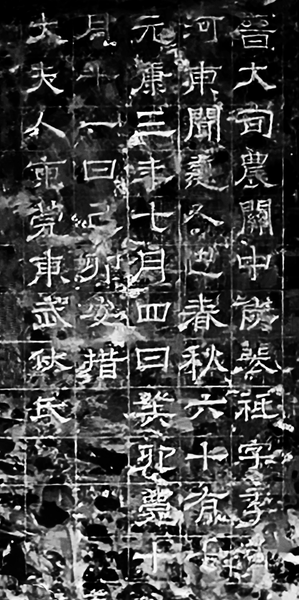 晉大司農關中侯裴祗字季
河東聞憙人也春秋六十有七
元康三年七月四日癸卯薨十
月十一日己卯安措
大夫人東莞東武伏氏